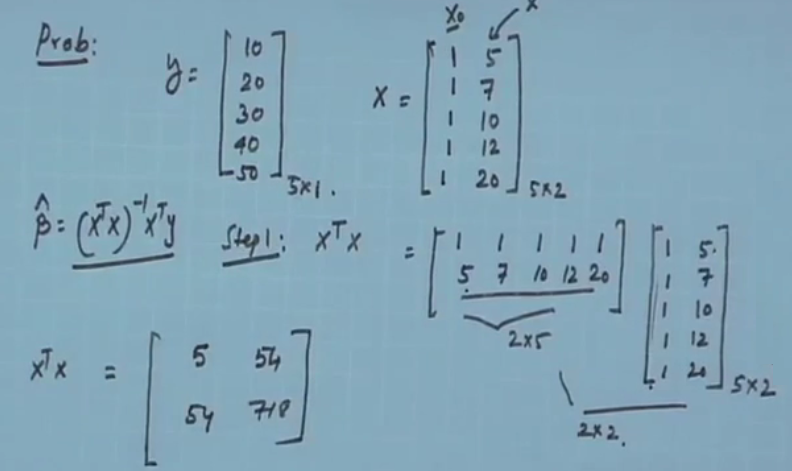 Prob:
y = [10 20 30 40 50] 5x1.
x0 x
X = [1 5 1 7 1 10 1 12 1 20] 5x2
β̂ = (xᵀx)⁻¹xᵀy Step1: xᵀx = [1 1 1 1 1 5 7 10 12 20] [1 5 1 7 1 10 1 12 1 20] 5x2
2x5
2x2.
xᵀx = [5 54 54 718]